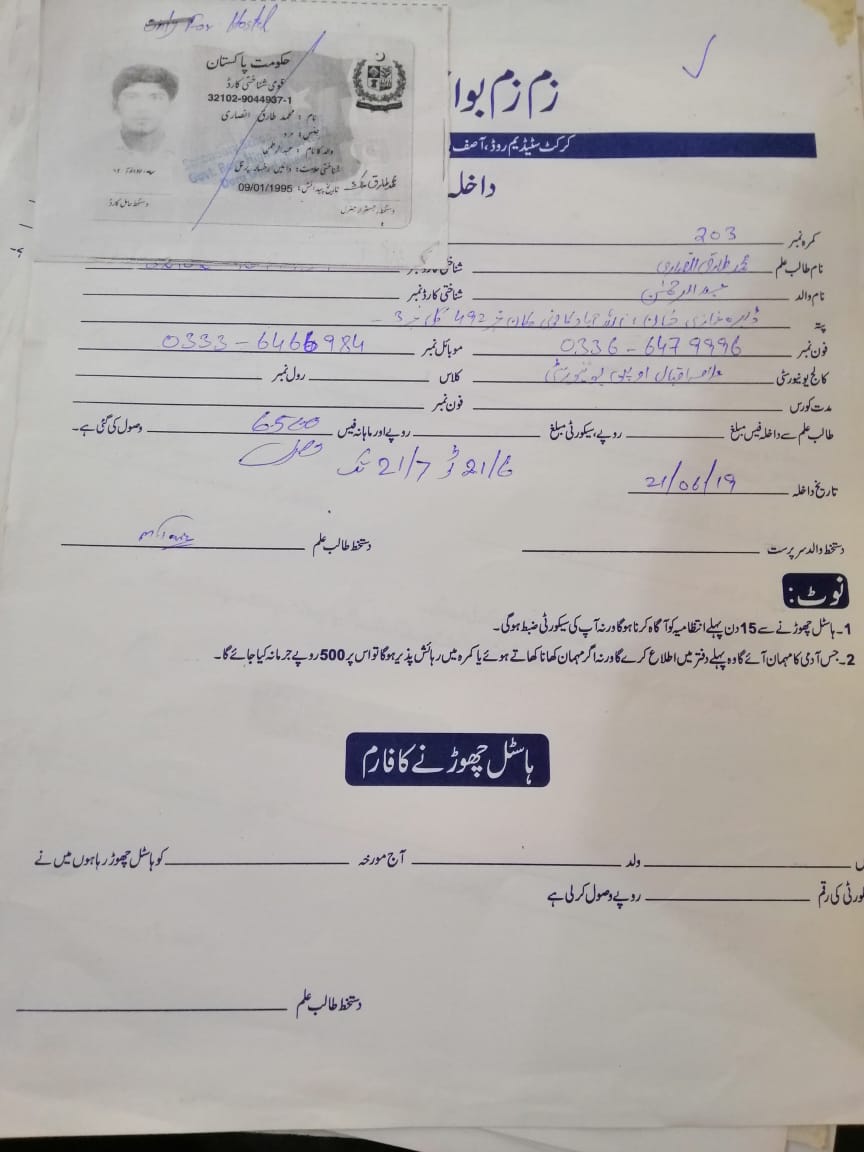 Only For Hostel
حکومت پاکستان
قومی شناختی کارڈ
32102-9044937-1
نام : محمد طارق انصاری
جنس : مرد
والد کا نام : عبدالرحمٰن
شناختی علامت :
تاریخ پیدائش : 09/01/1995
دستخط حامل کارڈ
دستخط رجسٹرار جنرل
زم زم بوا
کرکٹ سٹیڈیم روڈ، آصف
داخلہ
کمرہ نمبر 203
نام طالب علم محمد طارق انصاری شناختی کارڈ نمبر
نام والد عبدالرحمٰن شناختی کارڈ نمبر
پتہ ڈیرہ غازی خان، مکان نمبر 492 گلی نمبر 3
فون نمبر 0336-6479996 موبائل نمبر 0333-6466984
کالج یونیورسٹی علامہ اقبال اوپن یونیورسٹی کلاس رول نمبر
مدت کورس فون نمبر
طالب علم سے داخلہ فیس مبلغ روپے، سیکورٹی مبلغ روپے اور ماہانہ فیس 6500 وصول کی گئی ہے۔
21/6 21/7 تک وصول
تاریخ داخلہ 21/06/19
دستخط والد سرپرست دستخط طالب علم
نوٹ:
1۔ ہاسٹل چھوڑنے سے 15 دن پہلے انتظامیہ کو آگاہ کرنا ہوگا ورنہ آپ کی سیکورٹی ضبط ہوگی۔
2۔ جس آدمی کا مہمان آئے گا وہ پہلے دفتر میں اطلاع کرے گا ورنہ اگر مہمان کھانا کھاتے ہوئے یا کمرہ میں رہائش پذیر ہوگا تو اس پر 500 روپے جرمانہ کیا جائے گا۔
ہاسٹل چھوڑنے کا فارم
ولد آج مورخہ کو ہاسٹل چھوڑ رہا ہوں میں نے
کی رقم روپے وصول کر لی ہے
دستخط طالب علم